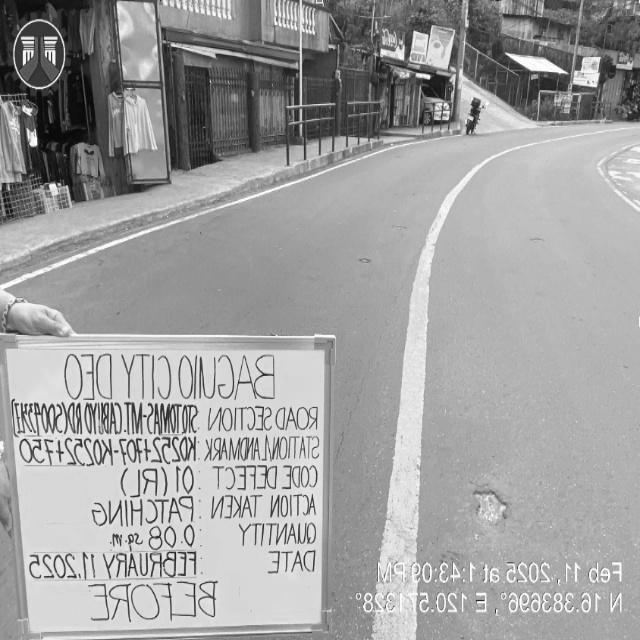 BAGUIO CITY DEO
ROAD SECTION : STO.TOMAS-MT.CABUYO RD
STATION/LANDMARK : K0252+707-K0252+750
CODE DEFECT : 01 (RL)
ACTION TAKEN : PATCHING
QUANTITY : 0.08 sq.m.
DATE : FEBRUARY 11,2025
BEFORE
Feb 11, 2025 at 1:43:09 PM
N 16.383696°, E 120.571328°